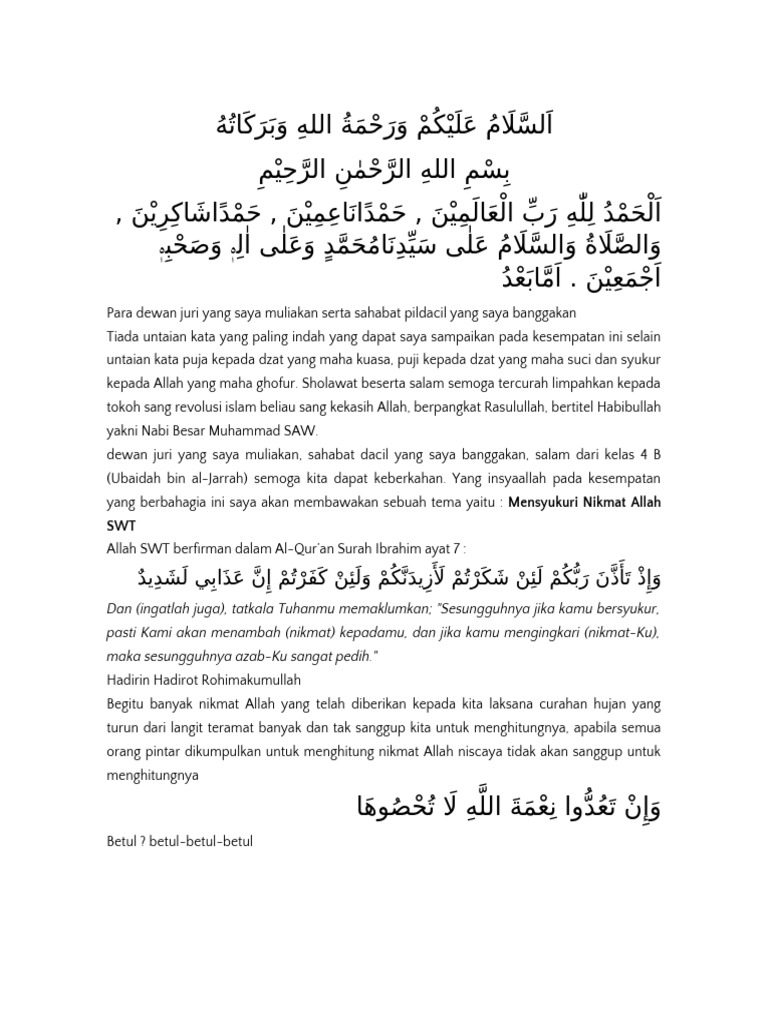 اَلسَّلَامُ عَلَيْكُمْ وَرَحْمَةُ اللهِ وَبَرَكَاتُهُ
بِسْمِ اللهِ الرَّحْمٰنِ الرَّحِيْمِ
اَلْحَمْدُ لِلّٰهِ رَبِّ الْعَالَمِيْنَ , حَمْدًانَاعِمِيْنَ , حَمْدًاشَاكِرِيْنَ ,
وَالصَّلَاةُ وَالسَّلَامُ عَلٰى سَيِّدِنَامُحَمَّدٍ وَعَلٰى اٰلِهٖ وَصَحْبِهٖ
اَجْمَعِيْنَ . اَمَّابَعْدُ
Para dewan juri yang saya muliakan serta sahabat pildacil yang saya banggakan
Tiada untaian kata yang paling indah yang dapat saya sampaikan pada kesempatan ini selain
untaian kata puja kepada dzat yang maha kuasa, puji kepada dzat yang maha suci dan syukur
kepada Allah yang maha ghofur. Sholawat beserta salam semoga tercurah limpahkan kepada
tokoh sang revolusi islam beliau sang kekasih Allah, berpangkat Rasulullah, bertitel Habibullah
yakni Nabi Besar Muhammad SAW.
dewan juri yang saya muliakan, sahabat dacil yang saya banggakan, salam dari kelas 4 B
(Ubaidah bin al-Jarrah) semoga kita dapat keberkahan. Yang insyaallah pada kesempatan
yang berbahagia ini saya akan membawakan sebuah tema yaitu : Mensyukuri Nikmat Allah
SWT
Allah SWT berfirman dalam Al-Qur'an Surah Ibrahim ayat 7 :
وَإِذْ تَأَذَّنَ رَبُّكُمْ لَئِنْ شَكَرْتُمْ لَأَزِيدَنَّكُمْ وَلَئِنْ كَفَرْتُمْ إِنَّ عَذَابِي لَشَدِيدٌ
Dan (ingatlah juga), tatkala Tuhanmu memaklumkan; "Sesungguhnya jika kamu bersyukur,
pasti Kami akan menambah (nikmat) kepadamu, dan jika kamu mengingkari (nikmat-Ku),
maka sesungguhnya azab-Ku sangat pedih."
Hadirin Hadirot Rohimakumullah
Begitu banyak nikmat Allah yang telah diberikan kepada kita laksana curahan hujan yang
turun dari langit teramat banyak dan tak sanggup kita untuk menghitungnya, apabila semua
orang pintar dikumpulkan untuk menghitung nikmat Allah niscaya tidak akan sanggup untuk
menghitungnya
وَإِنْ تَعُدُّوا نِعْمَةَ اللَّهِ لَا تُحْصُوهَا
Betul ? betul-betul-betul